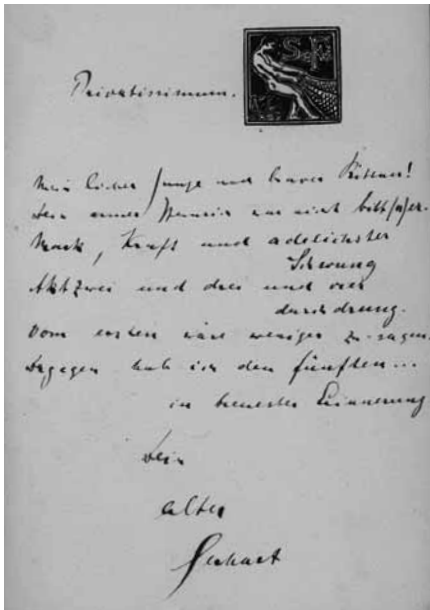 Privatissimum.
Mein lieber Junge und braver
Dein armer Heinrich war nicht
Mark, Kraft und adelichster
Schwung
Akt zwei und drei und vier
durchdrung.
Vom ersten wäre weniger zu sagen.
Dagegen hab ich den fünften...
in treuester Erinnerung
Dein
alter
Gerhart